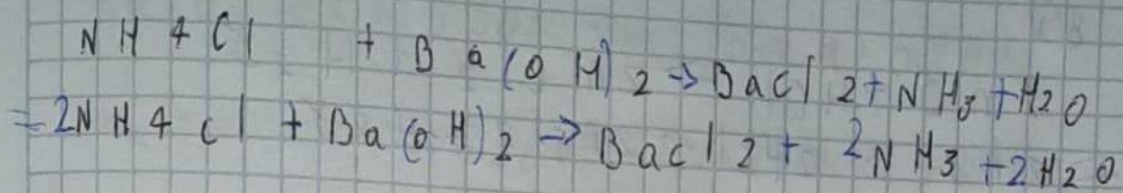 NH4Cl + Ba(OH)2 → BaCl2 + NH3 + H2O
= 2NH4Cl + Ba(OH)2 → BaCl2 + 2NH3 + 2H2O